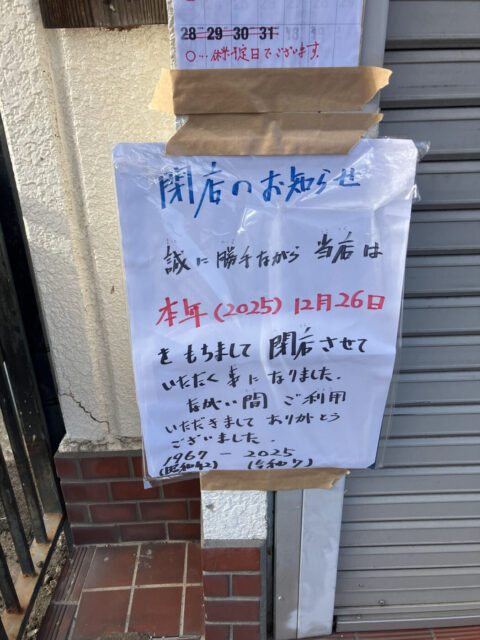 28 29 30 31
○…休業予定日でございます。
閉店のお知らせ
誠に勝手ながら 当店は
本年(2025)12月26日
をもちまして 閉店させて
いただく事になりました。
ながい間 ご利用
いただきまして ありがとう
ございました。
1967 - 2025
(昭和42) (令和7)